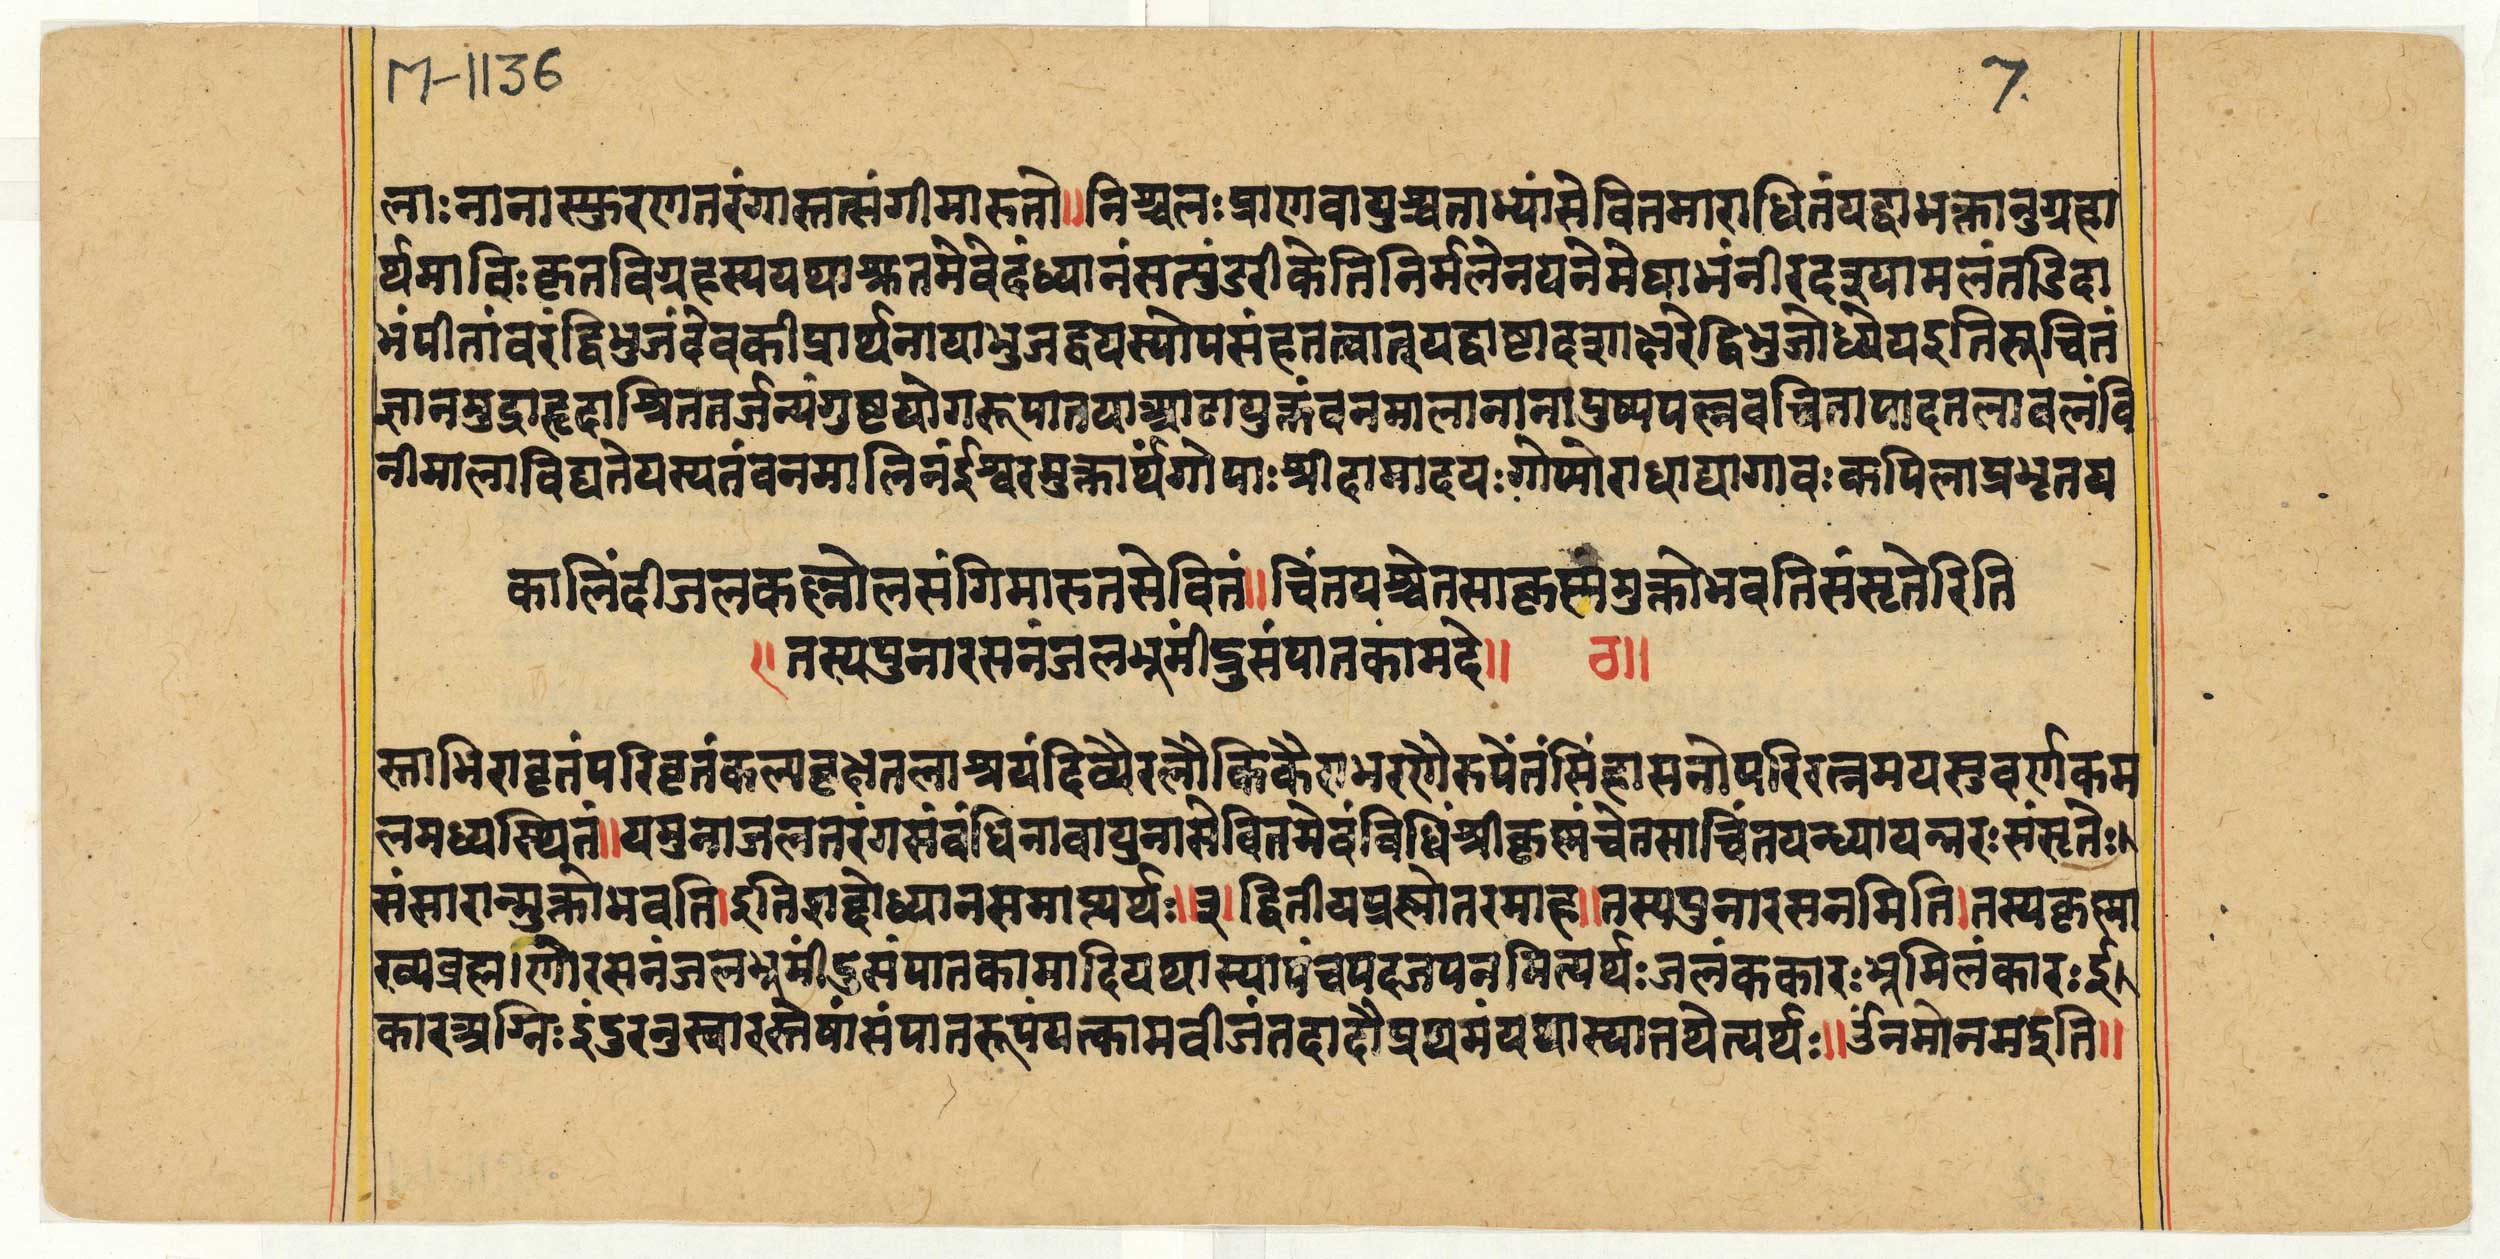 M-1136
7.
लाः नानास्फुरणतरंगास्तत्संगीमारुतो॥निश्चलः प्राणवायुश्चताभ्यांसेवितमाराधितंयद्वाभक्तानुग्रहा
र्थमाविःकृतविग्रहस्ययथाश्रुतमेवेदंध्यानंसत्पुंडरीकेतिनिर्मलेनयनेमेघाभंनीरदश्यामलंतडिदा
भंपीतांवरंद्विभुजंदेवकीप्रार्थनायाभुजद्वयस्योपसंहृतत्वात्यद्वाष्टादशाक्षरेद्विभुजोध्येयइतिसूचितं
ज्ञानमुद्राहृदाश्रिततर्जन्यंगुष्टयोगरूपातयाआढायुक्तंवनमालानानापुष्पपल्लवचितापादतलावलंवि
नीमालाविद्यतेयस्यतंवनमालिनंईश्वरमुक्तार्थंगोपाः श्रीदामादयः गोप्योराधाद्यागावः कपिलाप्रभृतय
कालिंदीजलकल्लोलसंगिमारुतसेवितं॥चिंतयश्चेतसाकृष्णंमुक्तोभवतिसंसृतेरिति
॥तस्यपुनारसनंजलभूमींदुसंपातकामदे॥ ठ॥
स्ताभिरावृतंपरिवृतंकल्पवृक्षतलाश्रयंदिव्यैरलौकिकैराभरणैरुपेतंसिंहासनोपरिरत्नमयसुवर्णकम
लमध्यस्थितं॥यमुनाजलतरंगसंवंधिनावायुनासेवितमेवंविधिंश्रीकृष्णंचेतसाचिंतयन्ध्यायन्नरः संसृतेः।
संसारान्मुक्तोभवति।इतिशब्दोध्यानसमाप्त्यर्थः॥३।द्वितीयप्रश्नोतरमाह॥तस्यपुनारसनमिति।तस्यकृष्णा
ख्यब्रह्मणोरसनंजलभूमींदुसंपातकामादियथास्यापंचपदजपनमित्यर्थः जलंककारः भूमिलंकारः ई।
कारअग्निः इंदुरनुस्वारस्तेषांसंपातरूपंयत्कामवीजंतदादौप्रथमंयथास्यातथेत्यर्थः॥ॐनमोनमइति॥